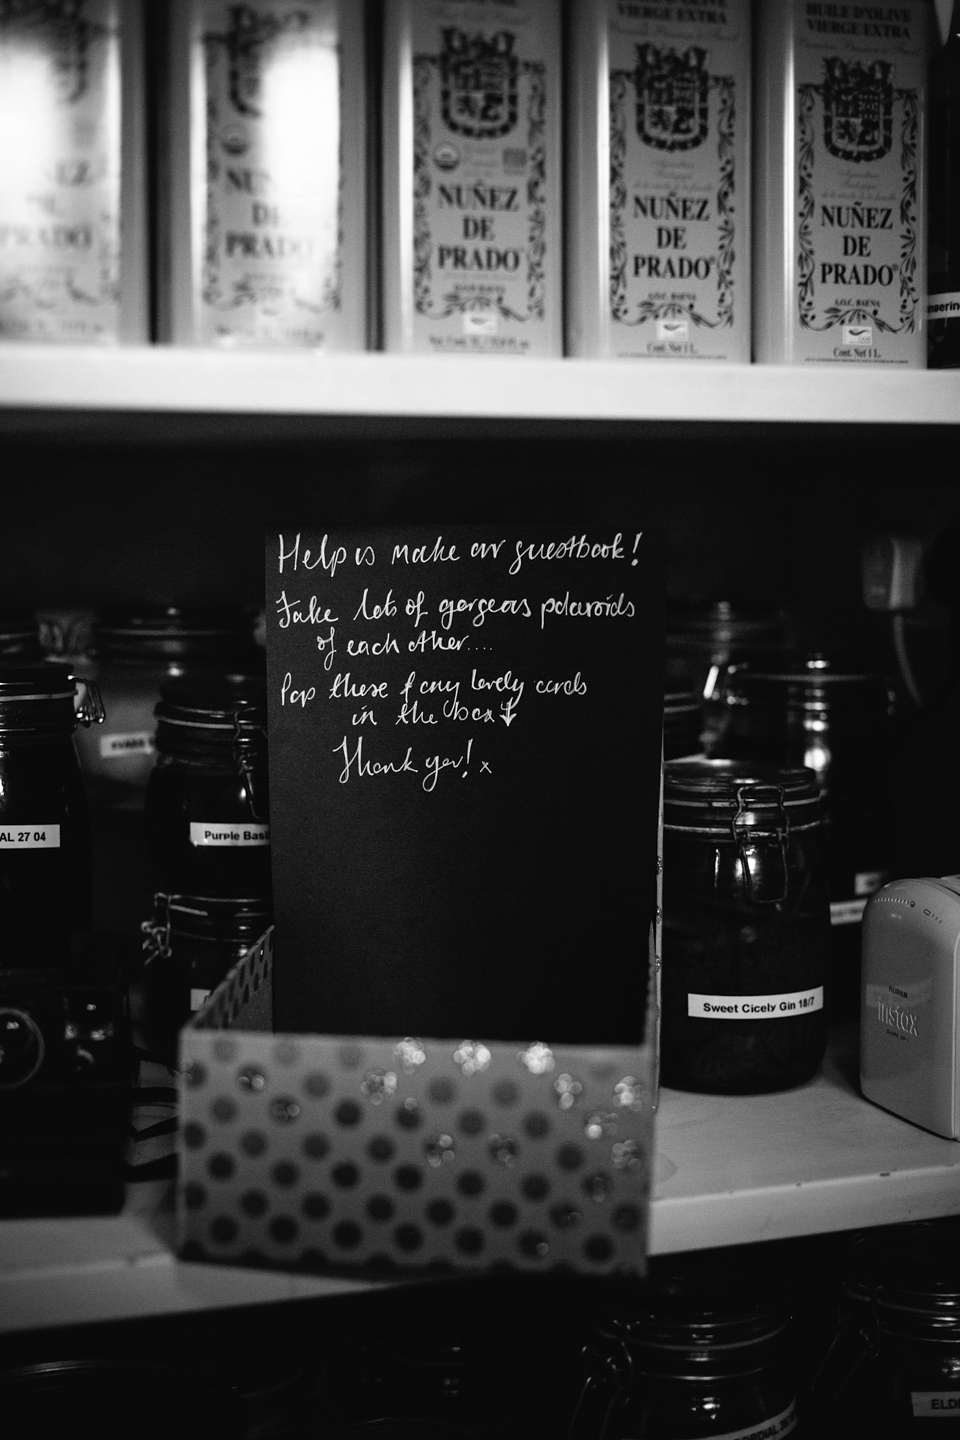 HUILE D'OLIVE
VIERGE EXTRA
VIERGE EXTRA
NUÑEZ
DE
PRADO
DE
PRADO
NUÑEZ
DE
PRADO®
NUÑEZ
DE
PRADO®
A.O.C. BAENA
Cont. Net 1 L.
NUÑEZ
DE
PRADO®
A.O.C. BAENA
Cont. Net 1 L.
Help us make our guestbook!
Take lots of gorgeous polaroids
of each other....
Pop these & any lovely cards
in the box ↓
Thank you! x
AL 27 04
Purple Basil
Sweet Cicely Gin 18/7
FUJIFILM
instax